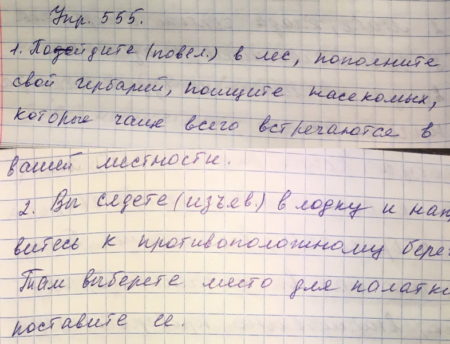 Упр. 555.
1. Подойдите (повел.) в лес, пополните
свой гербарий, поищите насекомых,
которые чаще всего встречаютсе в
вашей местности.
2. Вы сядете (изъев.) в лодку и нап
витесь к противоположному бере
Там выберете место для палатк
поставите ее.